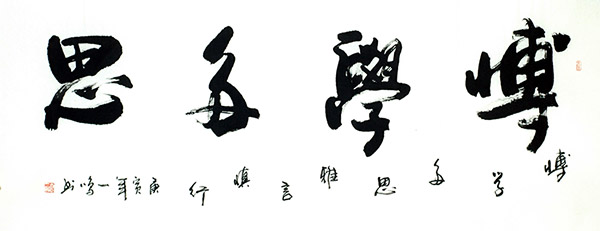 博學多思
博学多思雅言慎行
庚寅年一鸣书